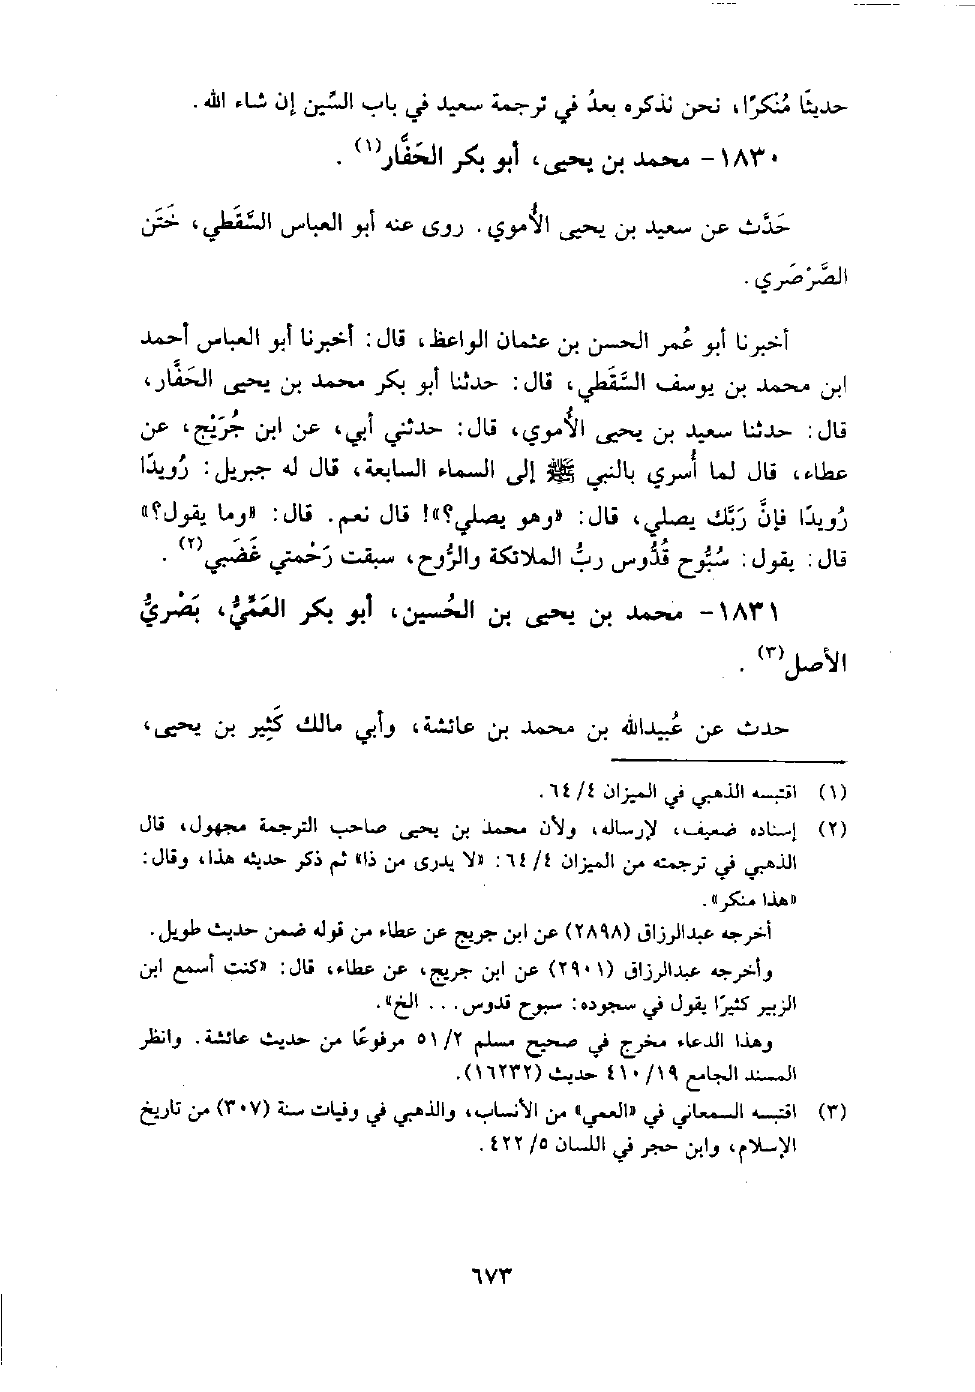 حديثًا مُنكرًا، نحن نذكره بعدُ في ترجمة سعيد في باب السِّين إن شاء الله.
١٨٣٠- محمد بن يحيى، أبو بكر الحَفَّار(١).
حَدَّث عن سعيد بن يحيى الأُموي. روى عنه أبو العباس السَّقَطي، خَتَن
الصَّرْصَري.
أخبرنا أبو عُمر الحسن بن عثمان الواعظ، قال: أخبرنا أبو العباس أحمد
ابن محمد بن يوسف السَّقَطي، قال: حدثنا أبو بكر محمد بن يحيى الحَفَّار،
قال: حدثنا سعيد بن يحيى الأُموي، قال: حدثني أبي، عن ابن جُرَيْج، عن
عطاء، قال لما أُسري بالنبي ﷺ إلى السماء السابعة، قال له جبريل: رُويدًا
رُويدًا فإنَّ رَبَّك يصلي، قال: «وهو يصلي؟»! قال نعم. قال: «وما يقول؟»
قال: يقول: سُبُّوح قُدُّوس ربُّ الملائكة والرُّوح، سبقت رَحْمتي غَضَبي(٢).
١٨٣١- محمد بن يحيى بن الحُسين، أبو بكر العَمِّيُّ، بَصْريُّ
الأصل(٣).
حدث عن عُبيدالله بن محمد بن عائشة، وأبي مالك كَثِير بن يحيى،
(١) اقتبسه الذهبي في الميزان ٤/ ٦٤.
(٢) إسناده ضعيف، لإرساله، ولأن محمد بن يحيى صاحب الترجمة مجهول، قال
الذهبي في ترجمته من الميزان ٤/ ٦٤: «لا يدرى من ذا» ثم ذكر حديثه هذا، وقال:
«هذا منكر».
أخرجه عبدالرزاق (٢٨٩٨) عن ابن جريج عن عطاء من قوله ضمن حديث طويل.
وأخرجه عبدالرزاق (٢٩٠١) عن ابن جريج، عن عطاء، قال: «كنت أسمع ابن
الزبير كثيرًا يقول في سجوده: سبوح قدوس... الخ».
وهذا الدعاء مخرج في صحيح مسلم ٢/ ٥١ مرفوعًا من حديث عائشة. وانظر
المسند الجامع ١٩/ ٤١٠ حديث (١٦٢٣٢).
(٣) اقتبسه السمعاني في «العمي» من الأنساب، والذهبي في وفيات سنة (٣٠٧) من تاريخ
الإسلام، وابن حجر في اللسان ٥/ ٤٢٢.
٦٧٣